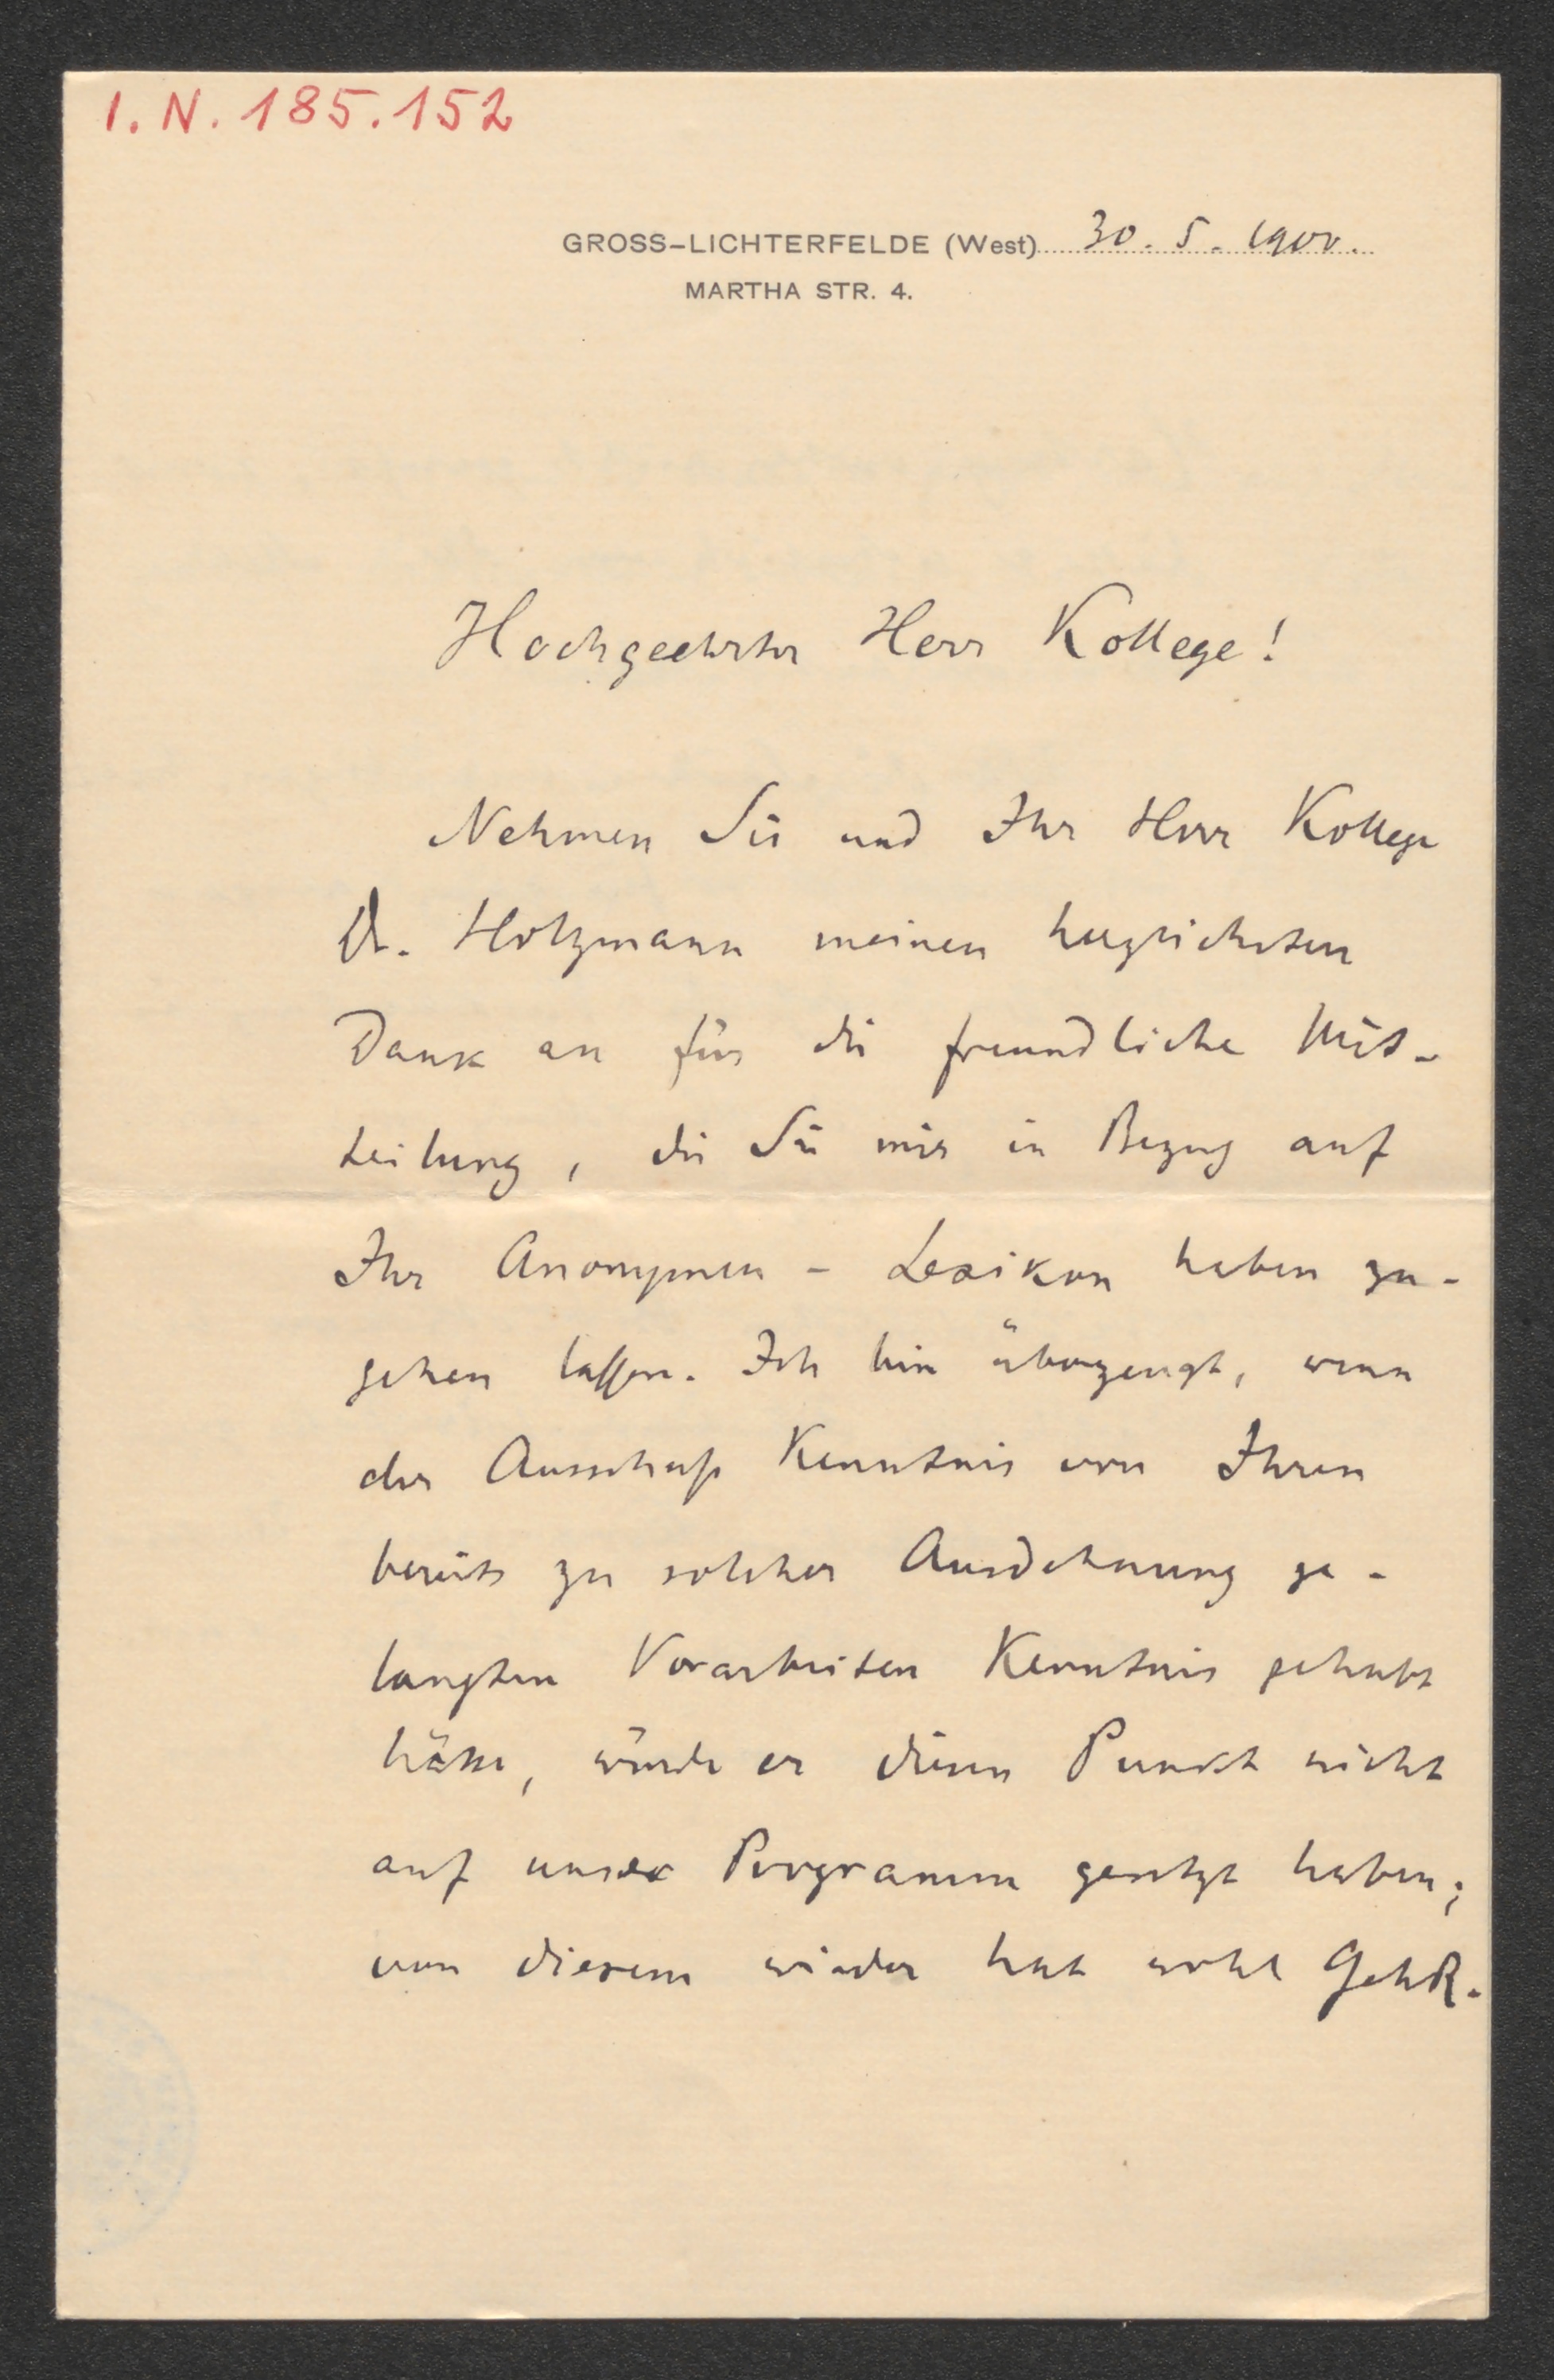 I. N. 185.152
GROSS-LICHTERFELDE (West) 30. 5. 1900.
MARTHA STR. 4.
Hochgeehrter Herr Kollege!
Nehmen Sie und Ihr Herr Kollege
Dr. Holzmann meinen herzlichsten
Dank an für die freundliche Mit-
teilung, die Sie mir in Bezug auf
Ihr Anonymen-Lexikon haben zu-
gehen lassen. Ich bin überzeugt, wenn
der Ausschuß Kenntnis von Ihren
bereits zu solcher Ausdehnung ge-
langten Vorarbeiten Kenntnis gehabt
hätte, würde er diesen Punkt nicht
auf unser Programm gesetzt haben;
von diesem wieder hat wohl GehR.